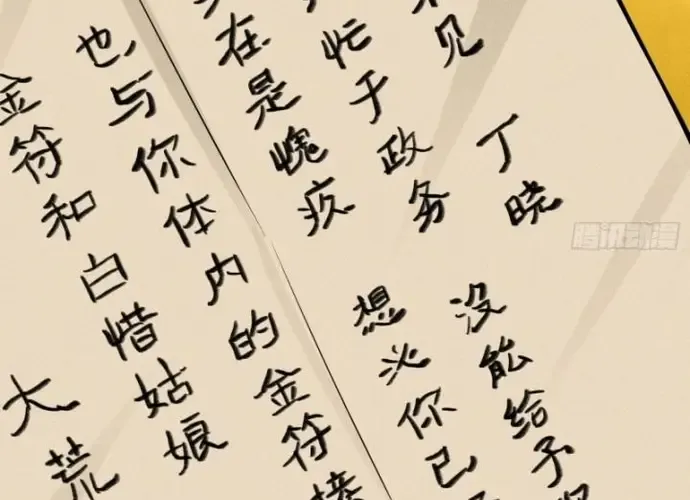 见 丁晓
忙于政务 没能给予
在是愧疚 想必你已
也与你体内的金符接
金符和白惜姑娘
大荒
腾讯动漫